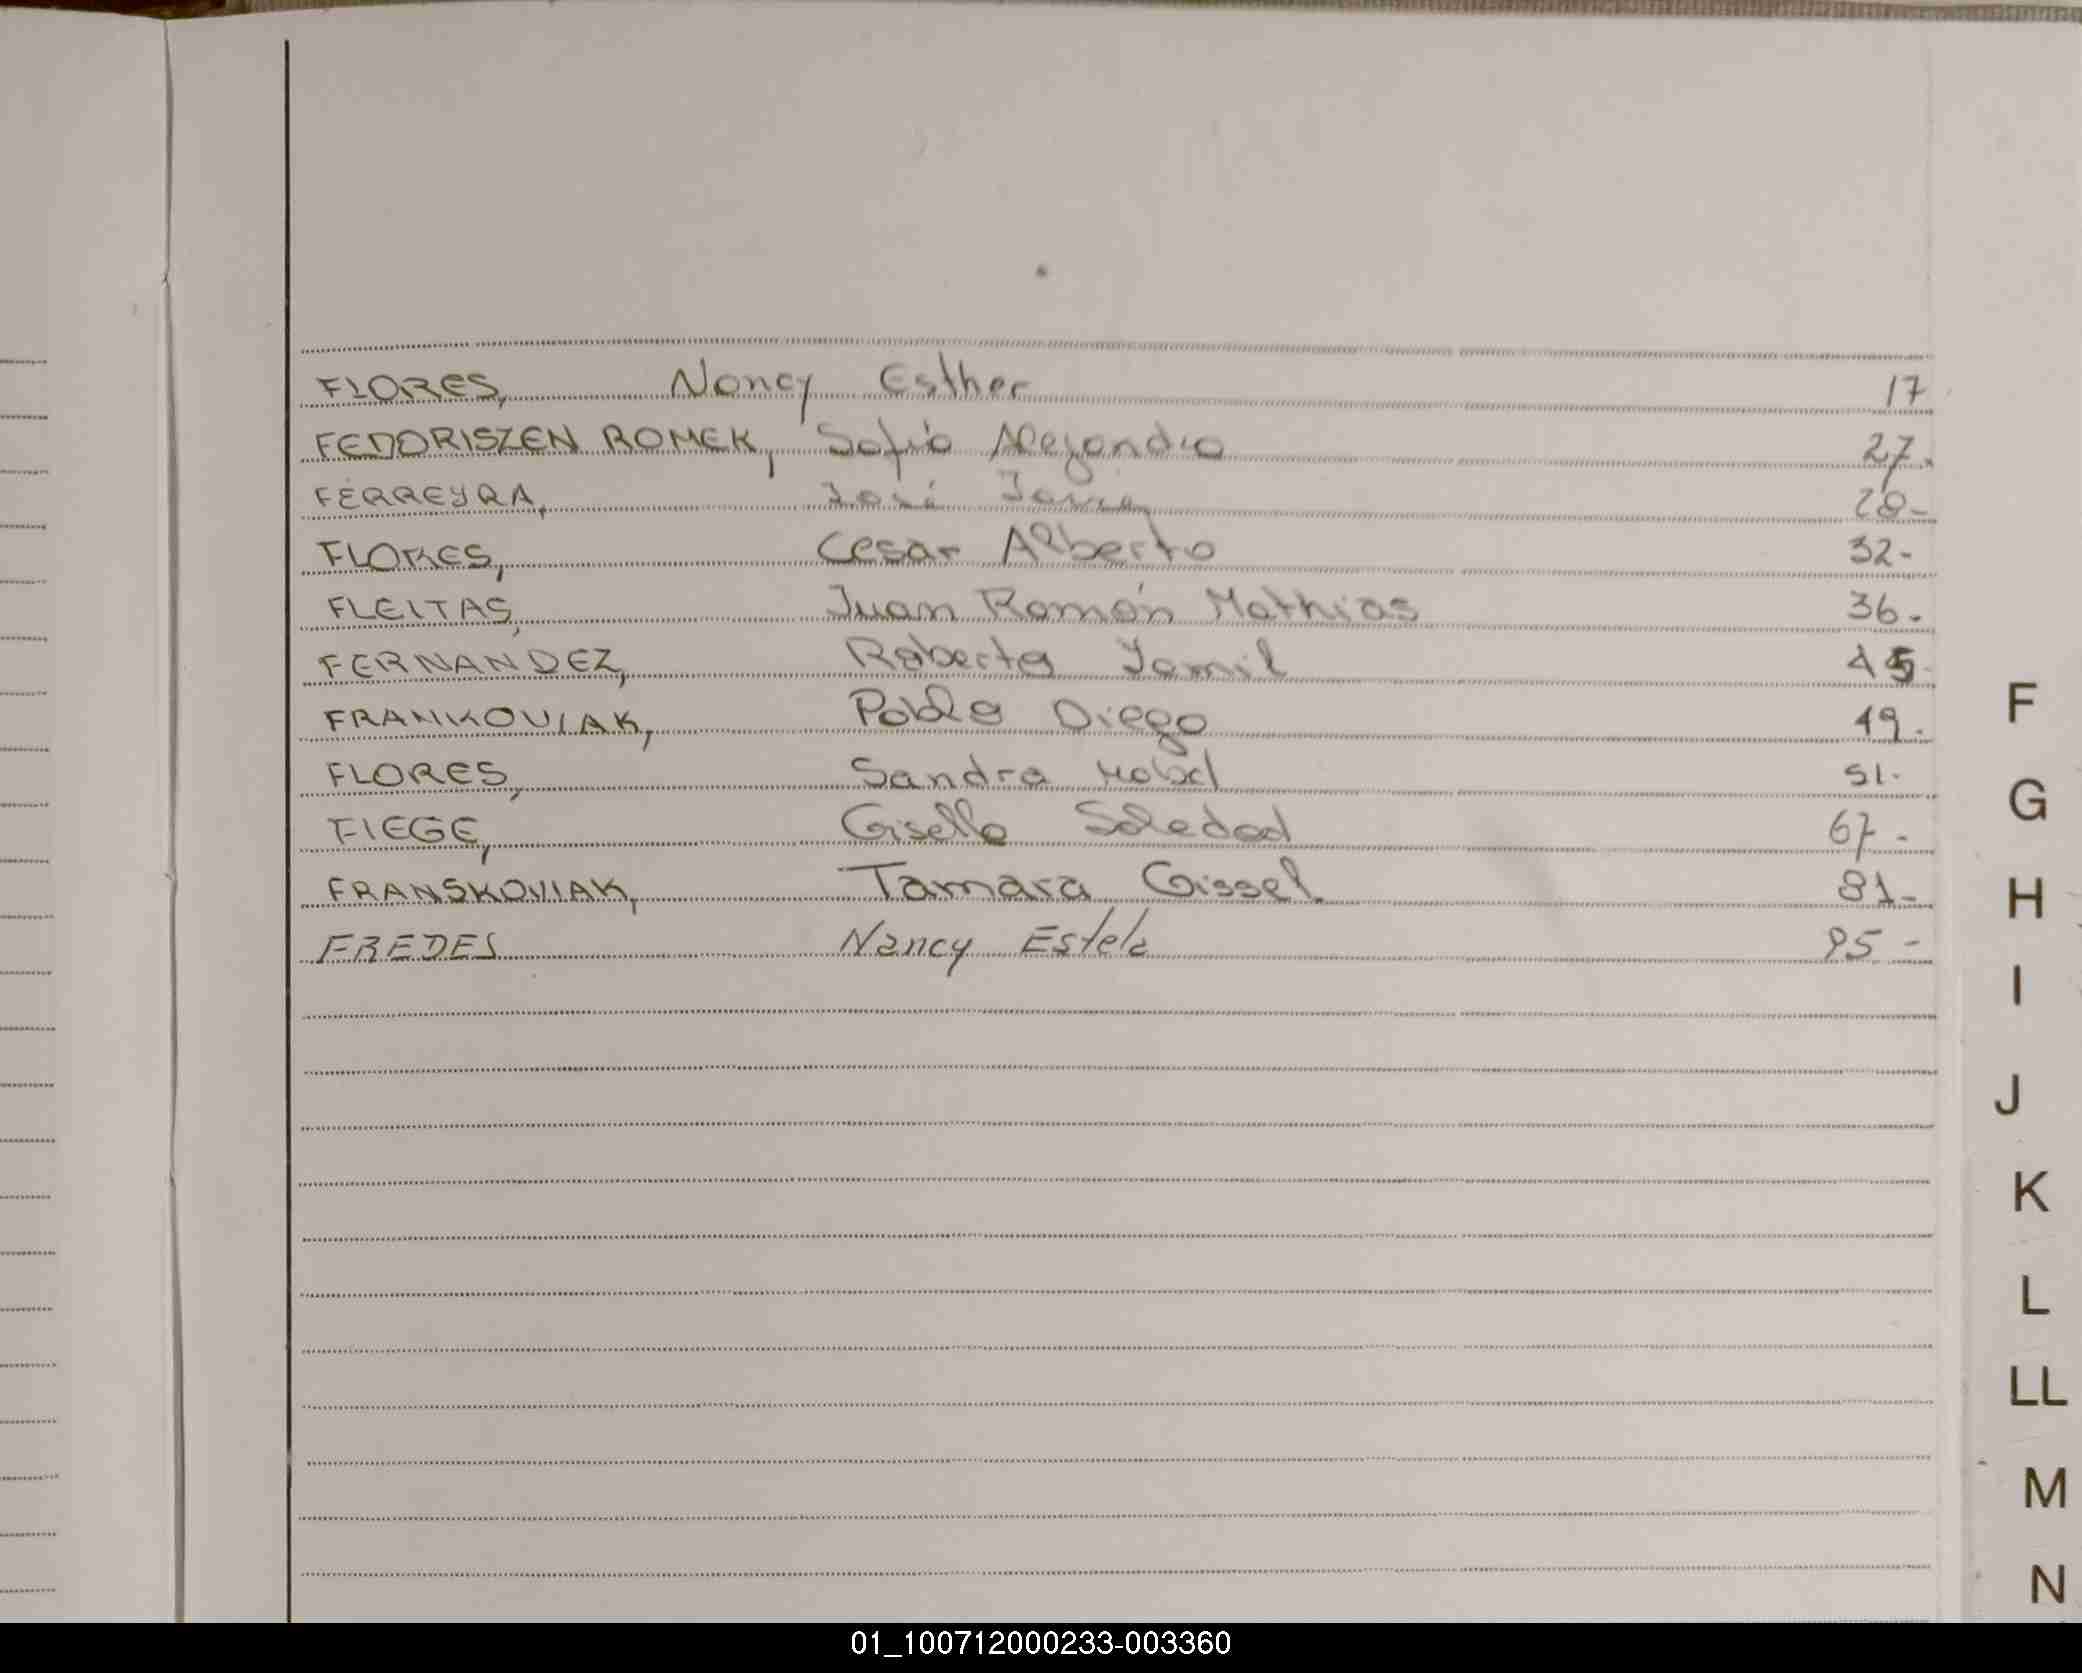 FLORES, Nancy Esther 17
FEDORISZEN ROMEK, Sofia Alejandra 27.
FERREYRA, José Javier 28-
FLORES, Cesar Alberto 32-
FLEITAS, Juan Román Mathias 36.
FERNANDEZ, Roberto Yamil 45.
FRANKOVIAK, Pablo Diego 49.
FLORES, Sandra Mabel 51.
FIEGE, Gisella Soledad 67.
FRANSKOVIAK, Tamara Gissel 81-
FREDES Nancy Estela 95-
F
G
H
I
J
K
L
LL
M
N
01_100712000233-003360